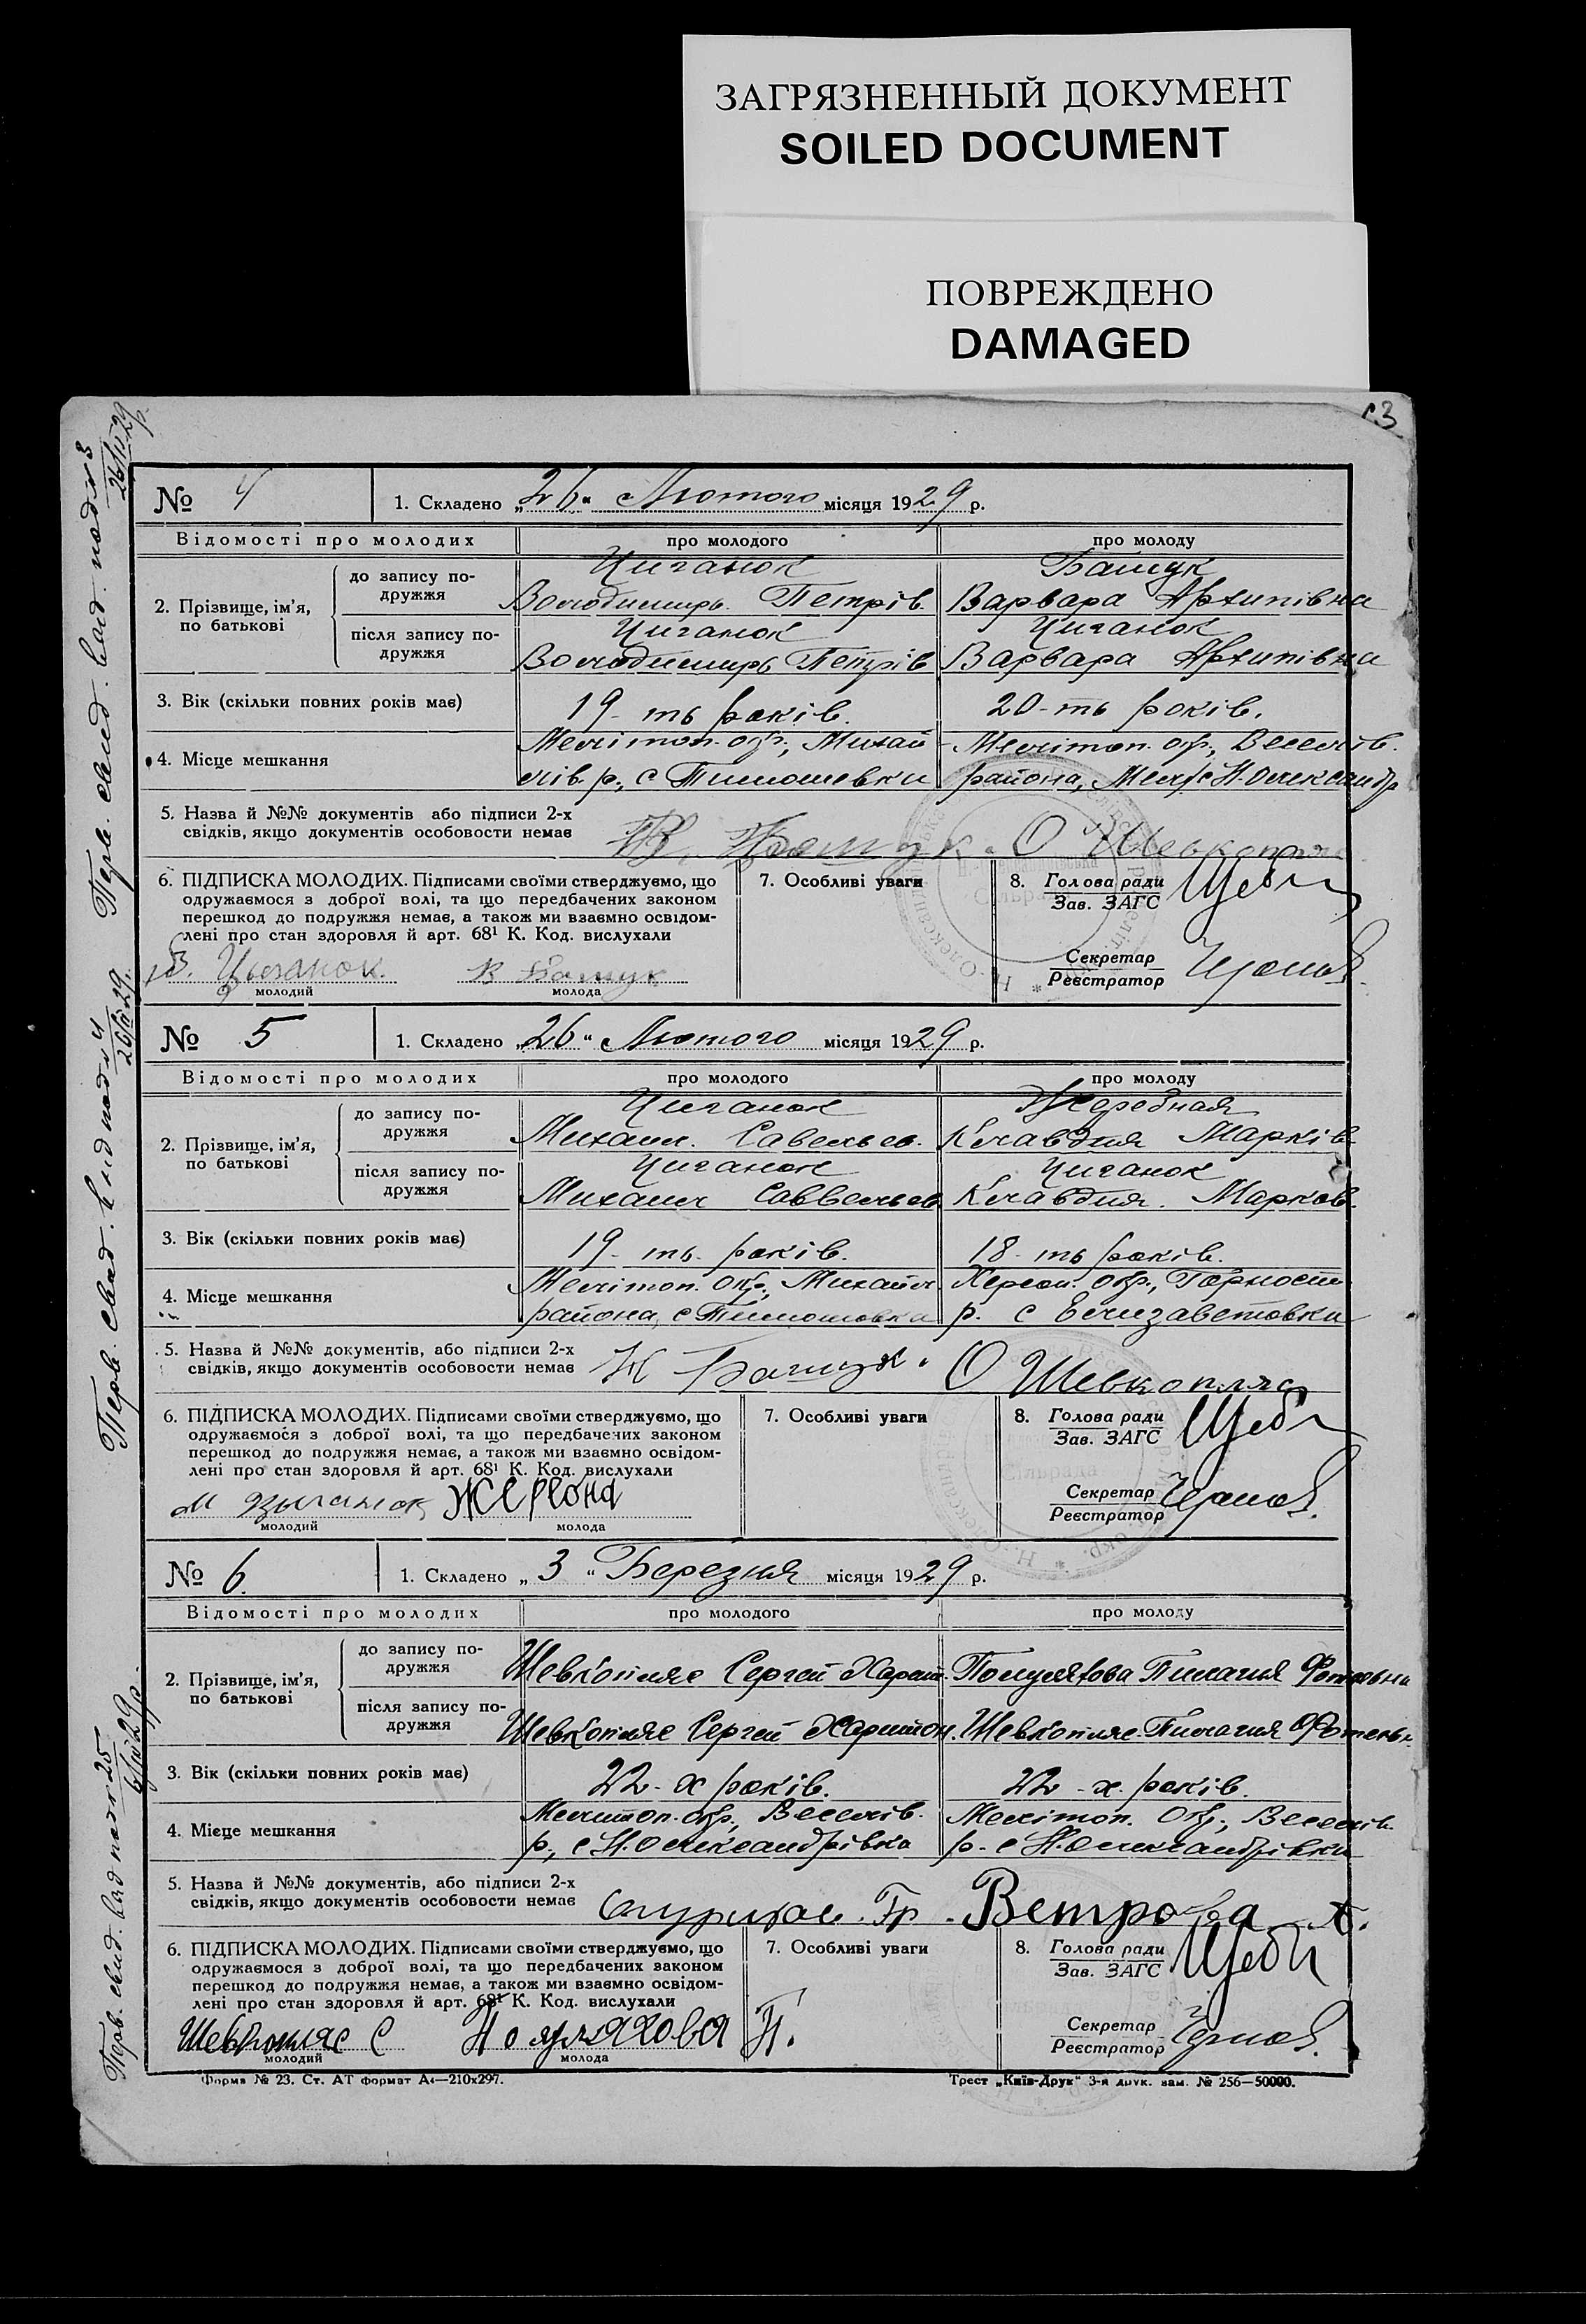 ЗАГРЯЗНЕННЫЙ ДОКУМЕНТ
SOILED DOCUMENT
ПОВРЕЖДЕНО
DAMAGED
№ 4 1. Складено „26“ Лютого місяця 1929 р.
Відомості про молодих про молодого про молоду
Циганок Башук
2. Прізвище, ім'я, по батькові
до запису по-
дружжя
Володимиръ Петрів. Варвара Архипівна
після запису по-
дружжя
Циганок Циганок
Володимиръ Петрів Варвара Архипівна
3. Вік (скільки повних років має) 19-ть років. 20-ть років.
4. Місце мешкання
Мелітоп. окр., Михай- Мелітоп. окр., Веселів.
лів. р., с Тимошевки района, с Н. Олександр
5. Назва й №№ документів або підписи 2-х
свідків, якщо документів особовости немає
Башук. О Шевкопляс
6. ПІДПИСКА МОЛОДИХ. Підписами своїми стверджуємо, що
одружаємося з доброї волі, та що передбачених законом
перешкод до подружжя немає, а також ми взаємно освідом-
лені про стан здоровля й арт. 68¹ К. Код. вислухали
7. Особливі уваги
8. Голова ради
Зав. ЗАГС
Секретар
Реєстратор
В. Цыганок. В Башук
молодий молода
№ 5 1. Складено „26“ Лютого місяця 1929 р.
Відомості про молодих про молодого про молоду
Циганок Жеребная
2. Прізвище, ім'я, по батькові
до запису по-
дружжя
Михаил. Савельев. Клавдия Марків
після запису по-
дружжя
Циганок Циганок
Михаил Саввельев Клавдия. Марков.
3. Вік (скільки повних років має) 19-ть років. 18-ть років.
4. Місце мешкання
Мелітоп. окр., Михайл. Херсон. окр., Горност
района, с Тимошовка р. с Елизаветовки
5. Назва й №№ документів, або підписи 2-х
свідків, якщо документів особовости немає
Н Башук. О Шевкопляс
6. ПІДПИСКА МОЛОДИХ. Підписами своїми стверджуємо, що
одружаємося з доброї волі, та що передбачених законом
перешкод до подружжя немає, а також ми взаємно освідом-
лені про стан здоровля й арт. 68¹ К. Код. вислухали
7. Особливі уваги
8. Голова ради
Зав. ЗАГС
Секретар
Реєстратор
М Цыганок
молодий молода
№ 6. 1. Складено „3“ Березня місяця 1929 р.
Відомості про молодих про молодого про молоду
2. Прізвище, ім'я, по батькові
до запису по-
дружжя
Шевкопляс Сергей Харит. Полуляхова Пилагия
після запису по-
дружжя
Шевкопляс Сергей Харитон. Шевкопляс Пилагия
3. Вік (скільки повних років має) 22-х років. 22-х років.
4. Місце мешкання
Мелитоп. окр., Веселів. Мелітоп. Окр., Веселів.
р., с Н. Олександрівка р. с Н. Олександрівки
5. Назва й №№ документів, або підписи 2-х
свідків, якщо документів особовости немає
Гр. Ветрова А.
6. ПІДПИСКА МОЛОДИХ. Підписами своїми стверджуємо, що
одружаємося з доброї волі, та що передбачених законом
перешкод до подружжя немає, а також ми взаємно освідом-
лені про стан здоровля й арт. 68¹ К. Код. вислухали
7. Особливі уваги
8. Голова ради
Зав. ЗАГС
Секретар
Реєстратор
Шевкопляс С П.
молодий молода
Форма № 23. Ст. АТ формат А4—210х297.
Трест „Київ-Друк“ 3-я друк. зам. № 256—50000.